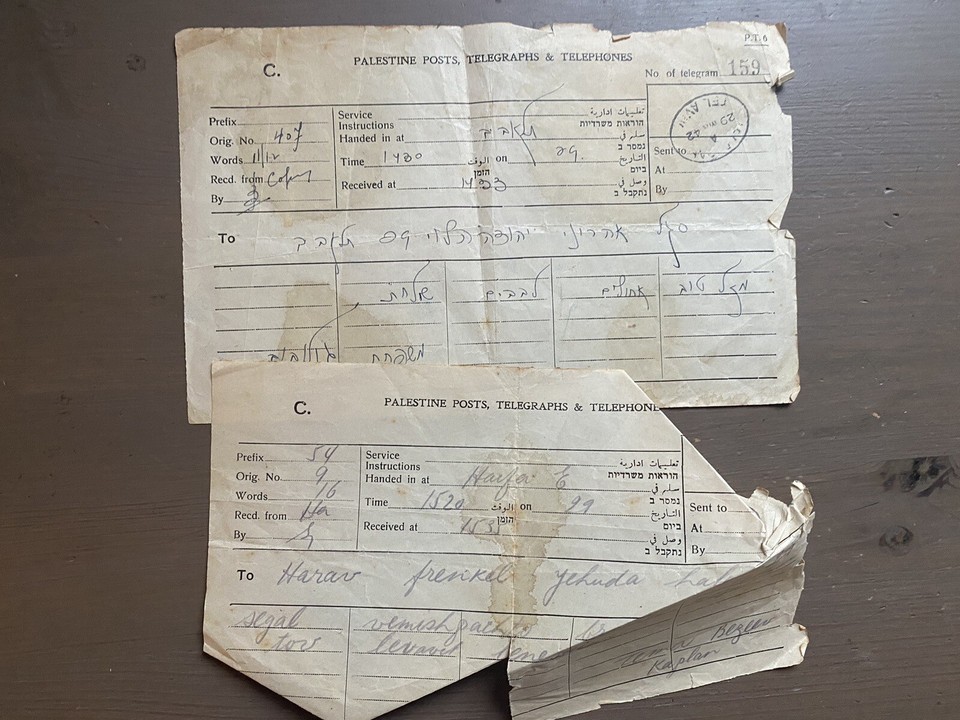 P.T. 6
C.
PALESTINE POSTS, TELEGRAPHS & TELEPHONES
No. of telegram 159
Prefix
Orig. No. 407
Words 11/12
Recd. from
By
Service Instructions تعليمات ادارية הוראות משרדיות
Handed in at תלאביב سلم في נמסר ב
Time 1430 الوقت הזמן on 29. التاريخ ביום
Received at 1433 وصل في נתקבל ב
TEL AVIV
29
42
Sent to
At
By
To סגל אהרוני יהודה הלוי 99 תלאביב
מזל טוב אחולים לבבים שלחת
משפחת
C.
PALESTINE POSTS, TELEGRAPHS & TELEPHONE
Prefix 54
Orig. No. 9
Words 16
Recd. from Ha
By
Service Instructions تعليمات ادارية הוראות משרדיות
Handed in at Haifa سلم في נמסר ב
Time 1520 الوقت הזמן on 29 التاريخ ביום
Received at وصل في נתקבל ב
Sent to
At
By
To Harav frenkel yehuda hal
segal
tov levavit
Kaplan